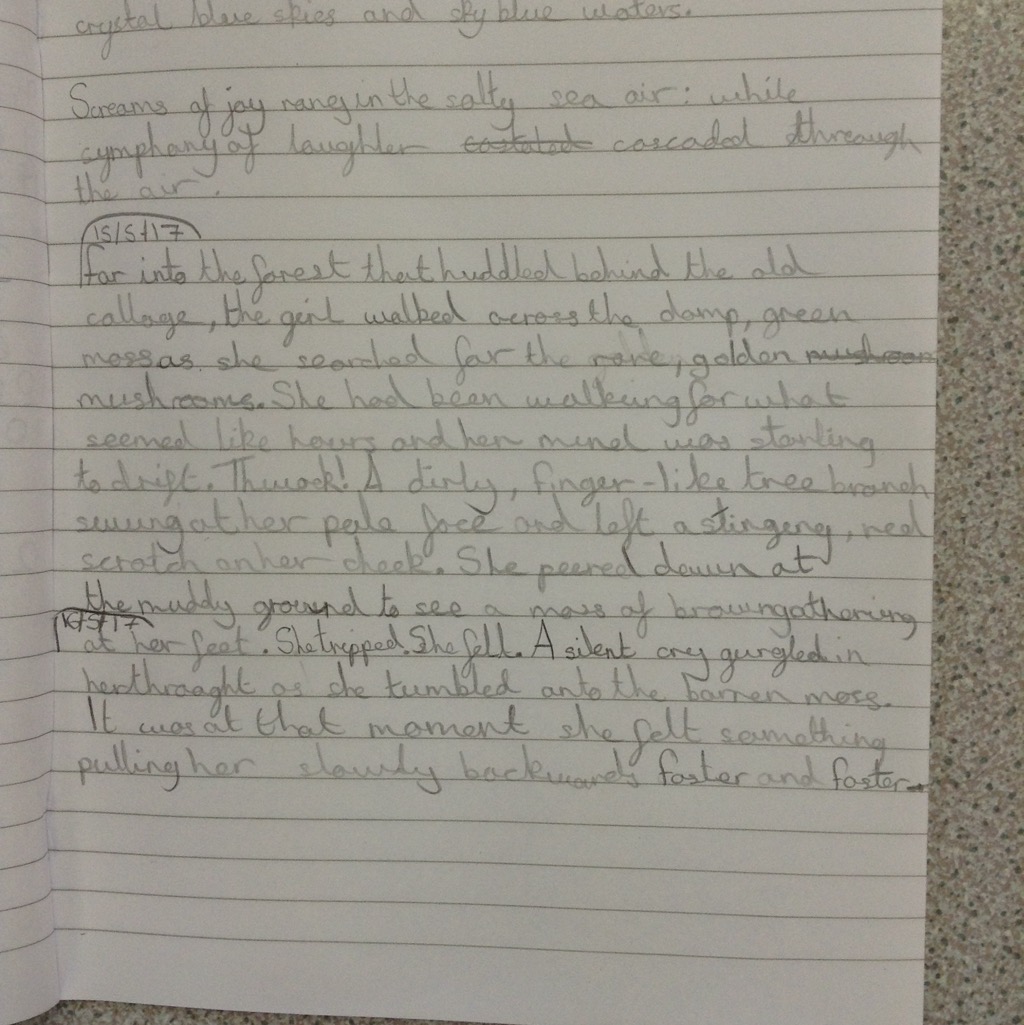 crystal blue skies and sky blue waters.
Screams of joy rang in the salty sea air: while
symphany of laughter cascaded threough
the air.
15/5/17
far into the forest that huddled behind the old
callage, the girl walked across the damp, green
moss as she searched for the rare, golden mushroom
mushrooms. She had been walking for what
seemed like hours and her mind was starting
to drift. Thwack! A dirty, finger-like tree branch
swung at her pale face and left a stinging, red
scratch on her cheek. She peered down at
the muddy ground to see a mass of brown gathering
16/5/17
at her feet. She tripped. She fell. A silent cry gurgled in
her thraaght as she tumbled onto the barren moss.
It was at that moment she felt something
pulling her slowly backwards faster and faster